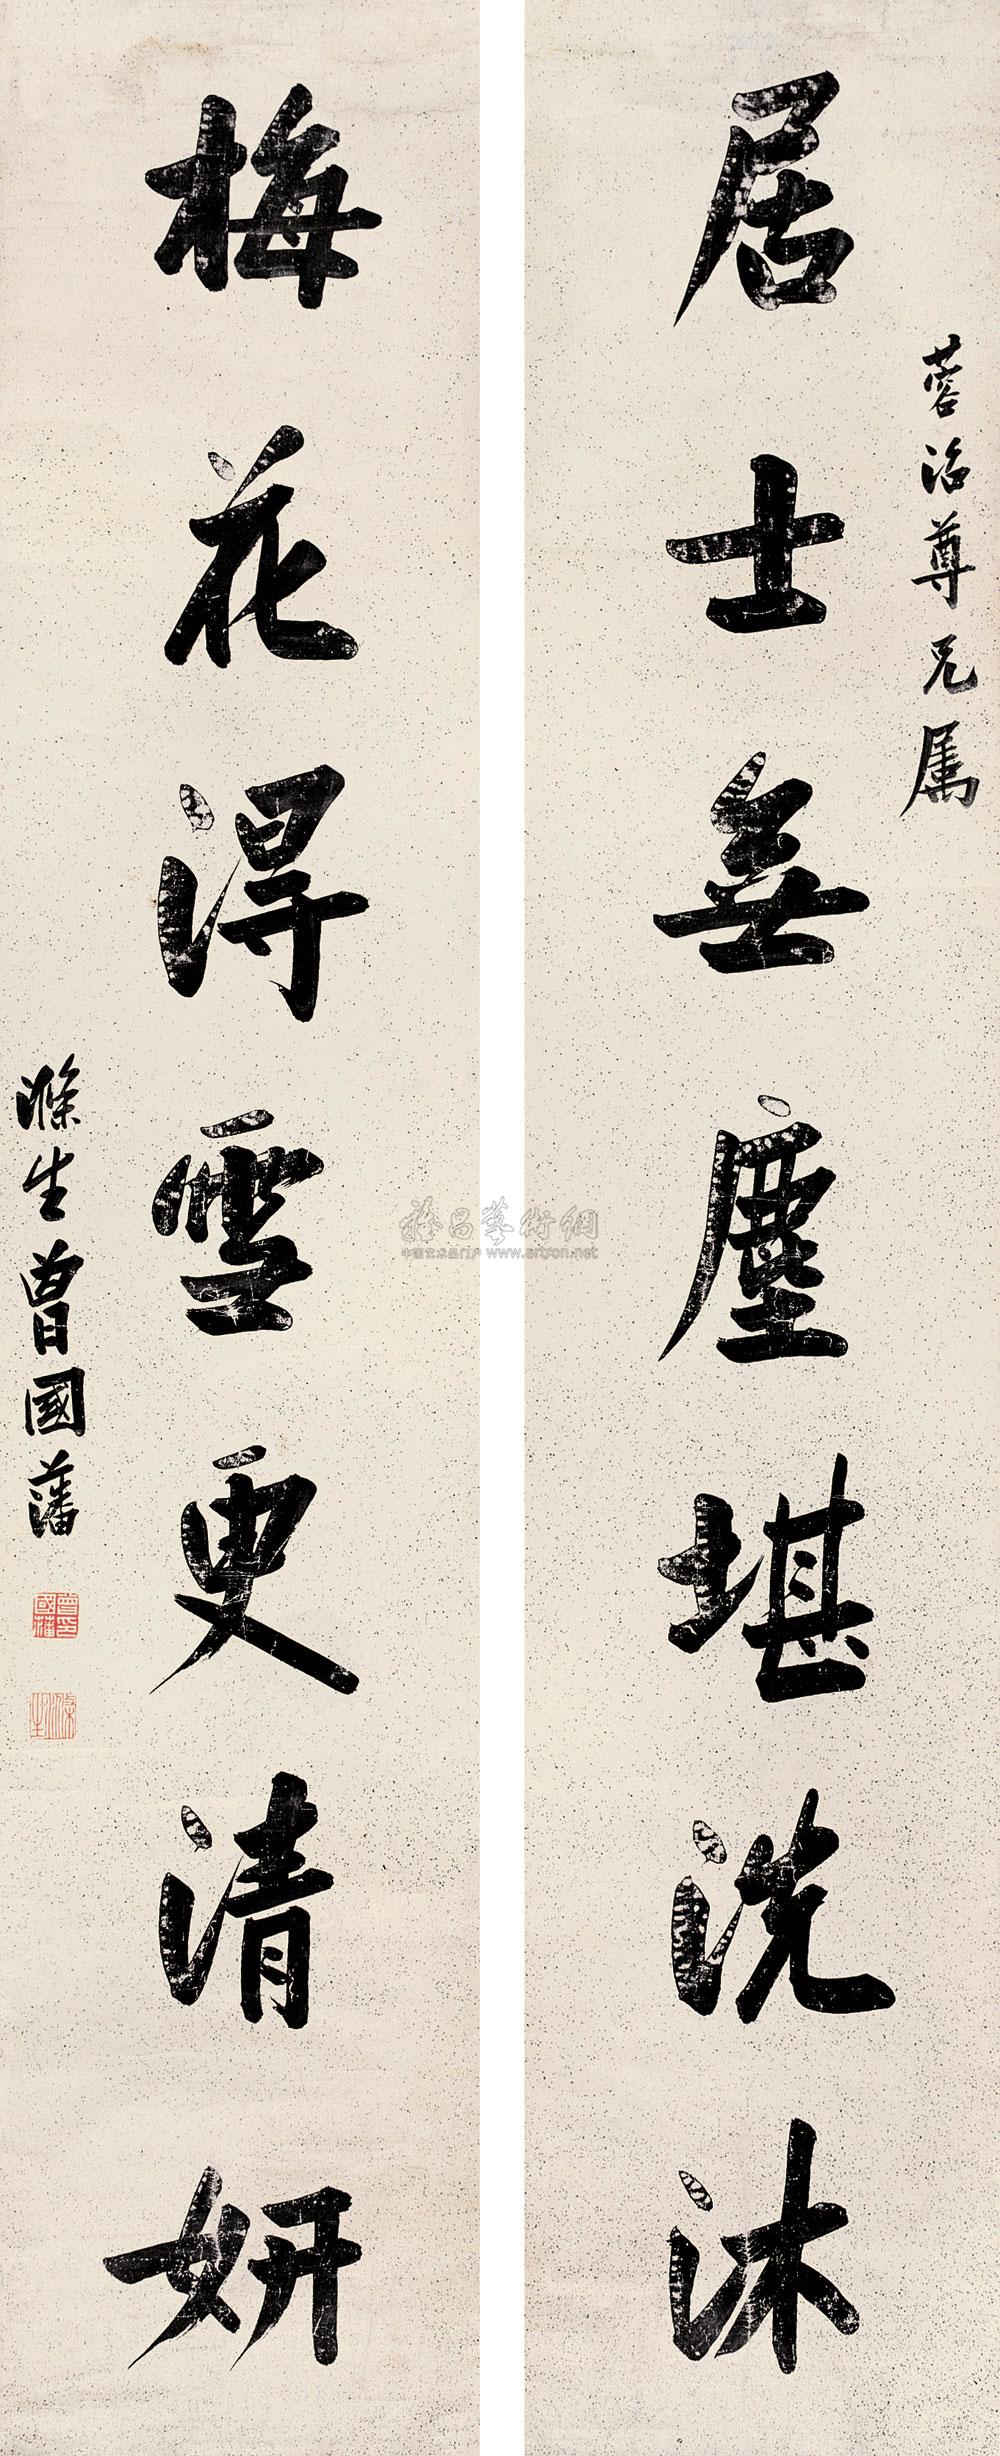 蓉洺尊兄属
居士無塵堪洗沐
梅花得雪更清妍
滌生曾國藩
曾國藩印
滌生
雅昌藝術網
中国艺术品门户 www.artron.net